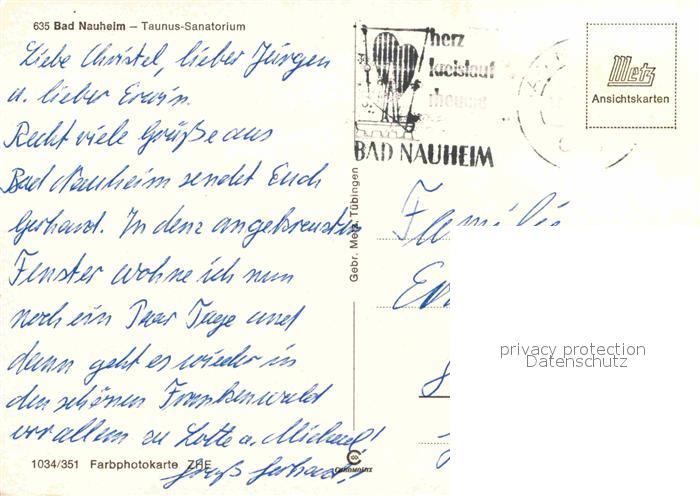 635 Bad Nauheim – Taunus-Sanatorium
Liebe Christel, lieber Jürgen
u. lieber Erwin.
Recht viele Grüße aus
Bad Nauheim sendet Euch
Gerhard. In denz angekreutzten
Fenster wohne ich nun
noch ein Paar Tage und
dann geht es wieder in
den schönen Frankenwald
vor allem zu Lotte u. Michael!
Gruß Gerhard!
1034/351 Farbphotokarte ZHE
Gebr. Metz, Tübingen
herz
kreislauf
rheuma
BAD NAUHEIM
Metz
Ansichtskarten
Familie
privacy protection
Datenschutz